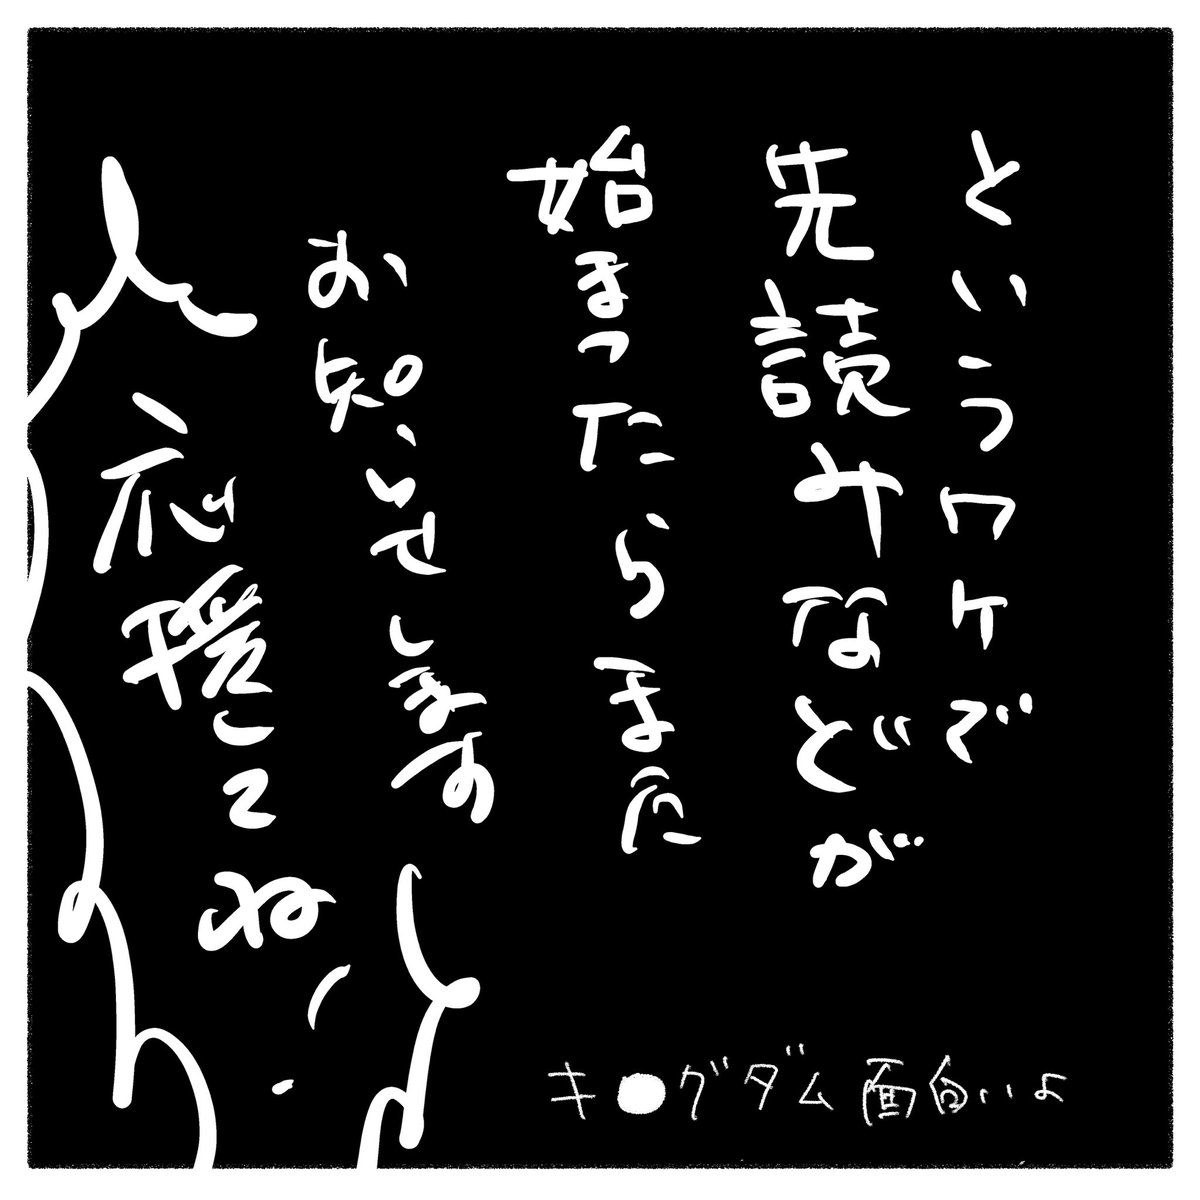 というワケで
先読みなどが
始まったらまた
お知らせします
応援してね!
キ●グダム面白いよ